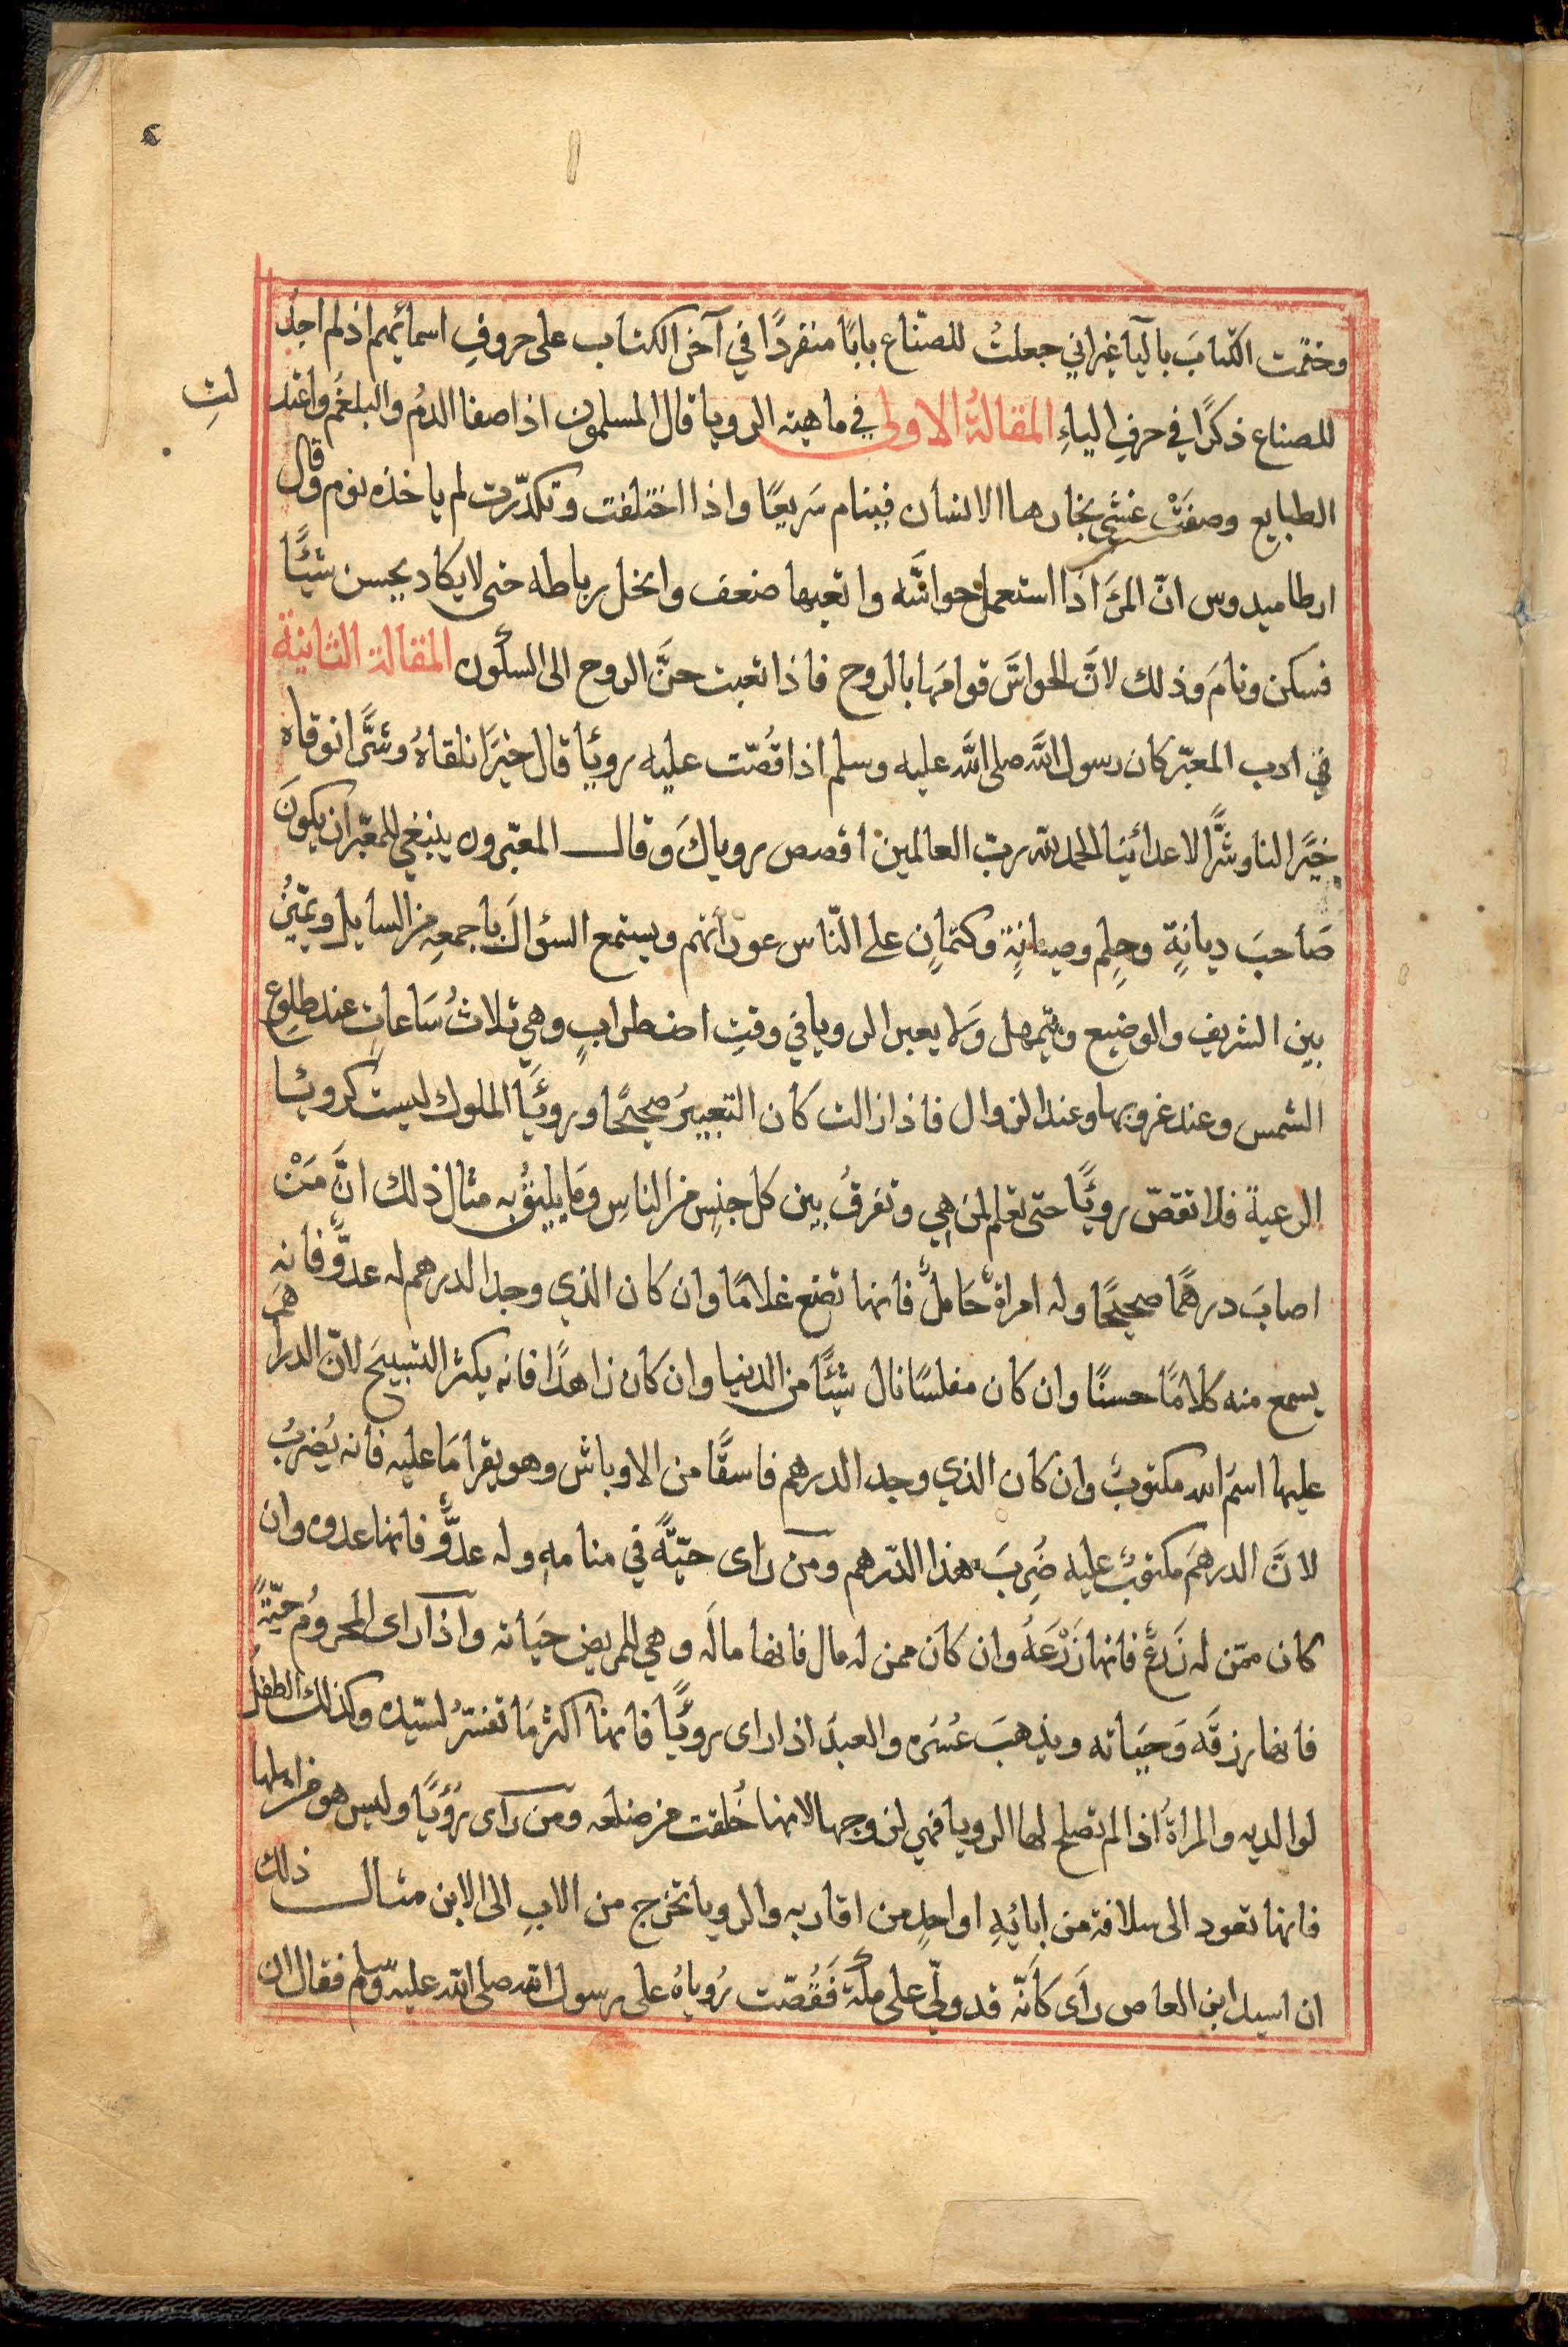 وختمت الكتابَ باليآء غيراني جعلتُ للصنّاع بابًا منفردًا في آخر الكتاب على حروفِ اسمائهم اذ لم اجد
للصناع ذكرًا في حرفِ الياءِ المقالةُ الاولى في ماهية الرويا قال المسلمون اذا صفا الدمُ والبلغمُ واعتد لتِ
الطبايع وصفَتْ غشى بخارها الانسان فينام سَريعًا واذا اختلفت وتكدّرت لم ياخذه نوم وقال
ارطاميدوس انّ المرَء اذا استعمل حواسّه واتعبها ضعف وانحل رباطه حتى لا يكاد يحسن شيئًا
فسكن ونامَ وذلك لانَّ الحواسَّ قوامَها بالروح فاذا تعبت حنَّ الروح الى السكون المقالة الثانية
في ادب المعبّر كان رسول اللَّه صلى اللَّه عليه وسلم اذا قُصّت عليه رويًا قال خيرًا نلقاهُ وشرًّا نتوقاه
خيرًا لنا وشرًّا لاعدائنا الحمد للّه ربّ العالمين اقصص روياكَ وقال المعبّرون ينبغي للمعبّر ان يكونَ
صَاحبَ ديانةٍ وحِلمٍ وصيانةٍ وكتمانٍ على النّاس عوراتهم ويستمع السؤالَ باجمعِهِ من السايل ويميّزُ
بين الشريف والوضيع ويتمهل وَلا يعبر الرويا في وقتِ اضطرابٍ وهي ثلاثُ سَاعاتٍ عند طلوع
الشمس وعند غروبها وعند الزوال فاذا زالت كان التعبيرُ صحيحًا ورويَا الملوك ليست كرويا
الرعية فلا تقصّ رويًا حتى تعلم لمن هِي وتفرقُ بين كل جنسٍ من الناسِ ومَا يليقُ به مثال ذلك انَّ مَنْ
اصابَ درهمًا صحيحًا وله امراة حَاملٌ فانها تضع غلامًا وان كان الذي وجد الدرهم له عدوٌّ فانهِ
يسمع منه كلامًا حسنًا وان كان مفلسًا نال شيئًا من الدنيا وان كان زاهدًا فانه يكثر التسبيحَ لانّ الدراهمَ
عليها اسمُ الله مكتوبٌ وان كان الذي وجد الدرهم فاسقًا من الاوباش وهو يقرا مَا عليه فانه يُضربُ
لانَّ الدرهمَ مكتوبٌ عليه ضُرِبَ هذا الدّرهم ومن رَاى حيّةً في منامهِ وله عدوٌّ فانها عدوه وان
كان ممّن له زَرعٌ فانها زَرْعَهُ وان كان ممن له مال فانها مالَه وهي للمريض حيَاته واذا راى المحرومُ حيّةً
فانها رزقَه وَحيَاته ويذهبَ عُسْرَه والعبدَ اذا راى رويًا فانها اكثر مَا تفسّرُ لسيّده وكذلك الطفلُ
لوالديه والمراةُ اذا لم تصلح لها الرويا فهي لزوجها لانها خُلقت من ضلعه ومن رَاى رُؤيًا وليس هو من اهلها
فانها تعود الى سلافة من ابائيهِ او احدٍ من اقاربه والرويا تخرج من الابِ الى الابن مثال ذلك
ان اسيد ابن العاص رَاى كانّه قد ولّي على مكّة فَقُصّت رُوياهُ على رسول الله صلى اللّه عليه وسلم فقال ان